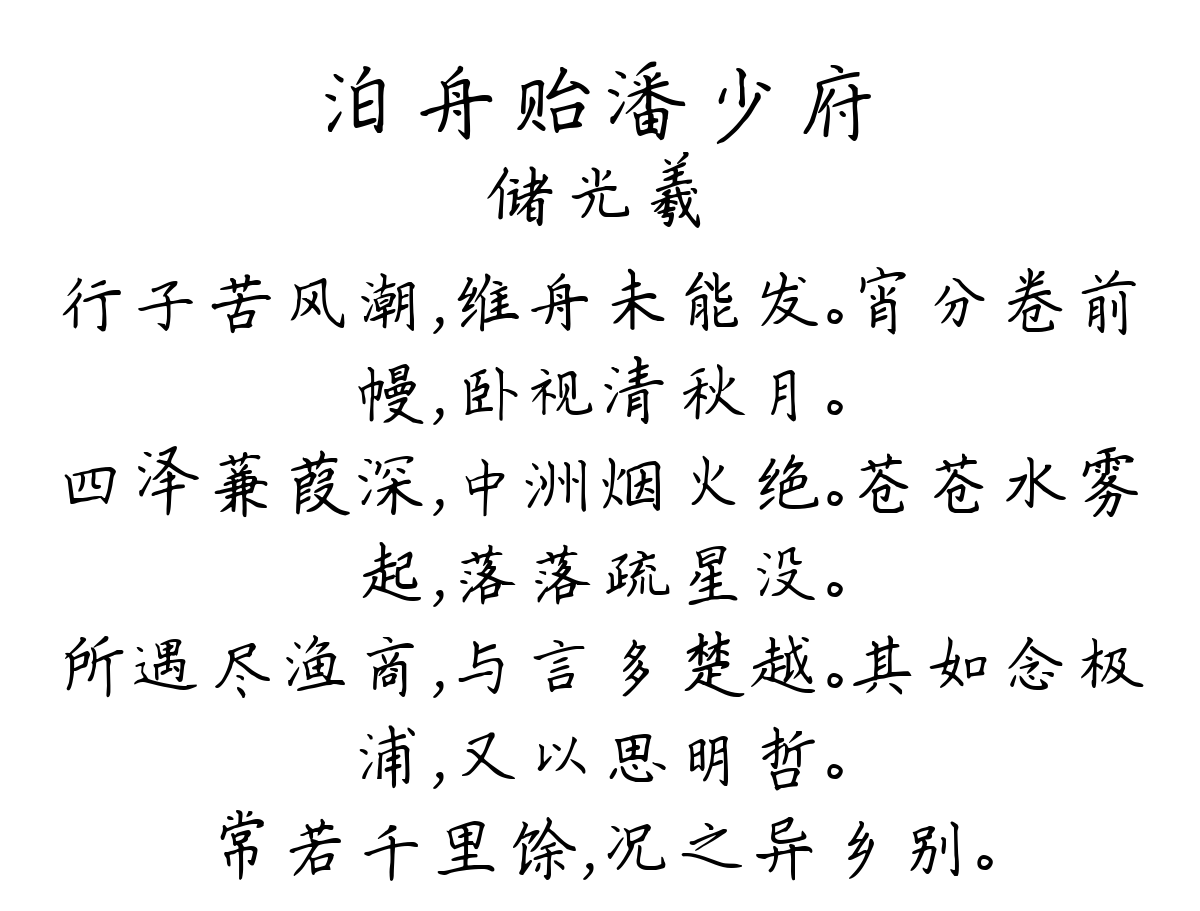 泊舟贻潘少府
储光羲
行子苦风潮,维舟未能发。宵分卷前
幔,卧视清秋月。
四泽蒹葭深,中洲烟火绝。苍苍水雾
起,落落疏星没。
所遇尽渔商,与言多楚越。其如念极
浦,又以思明哲。
常若千里馀,况之异乡别。